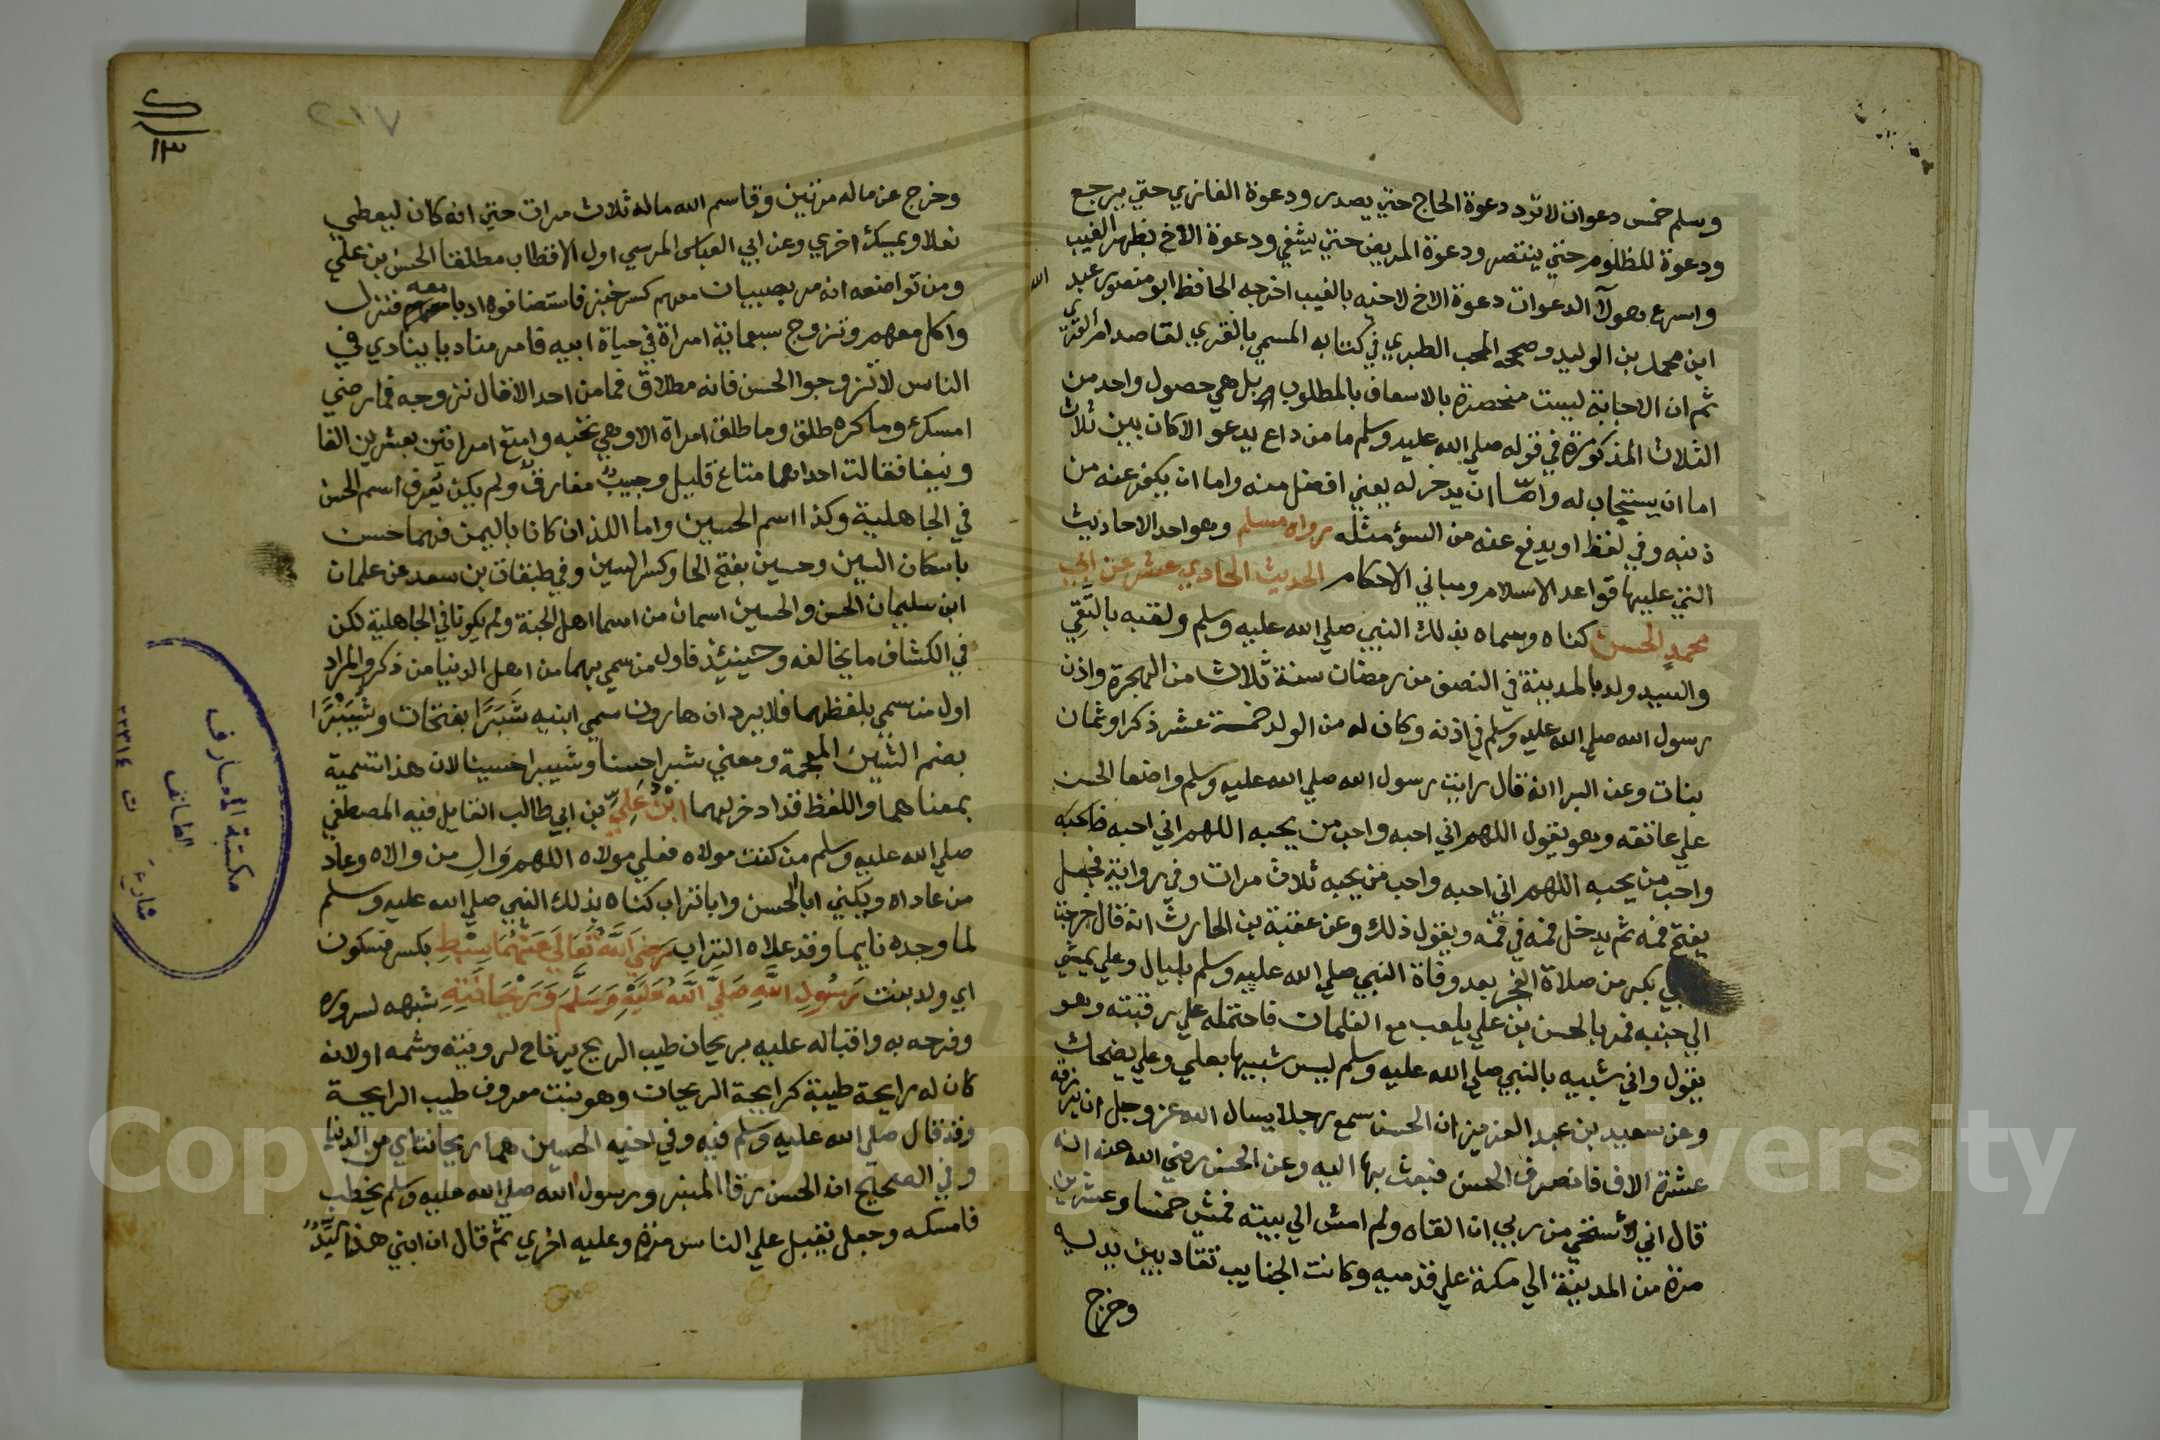 وسلم خمس دعوات لا ترد دعوة الحاج حتي يصدر ودعوة الغازي حتي يرجع
ودعوة المظلوم حتي ينتصر ودعوة المريض حتي يشفي ودعوة الاخ بظهر الغيب
واسرع هولآ الدعوات دعوة الاخ لاخيه بالغيب اخرجه الحافظ ابو منصور عبد الله
ابن محمد بن الوليد وصححه المحب الطبري في كتابه المسمي بالقري لقاصد ام القري
ثم ان الاجابة ليست منحصرة بالاسعاف بالمطلوب بل هي حصول واحد من
الثلاث المذكورة في قوله صلي الله عليه وسلم ما من داع يدعو الا كان بين ثلاث
اما ان يستجاب له واما ان يدخر له يعني افضل منه واما ان يكفر عنه من
ذنبه وفي لفظ او يدفع عنه من السؤ مثله رواه مسلم وهو احد الاحاديث
التي عليها قواعد الاسلام ومباني الاحكام الحديث الحادي عشر عن ابي
محمد الحسن كناه وسماه بذلك النبي صلي الله عليه وسلم ولقبه بالتقي
والسيد ولد بالمدينة في النصف من رمضان سنة ثلاث من الهجرة واذن
رسول الله صلي الله عليه وسلم في اذنه وكان له من الولد خمسة عشر ذكرا وثمان
بنات وعن البرا انه قال رايت رسول الله صلي الله عليه وسلم واضعا الحسن
علي عاتقه وهو يقول اللهم اني احبه واحب من يحبه اللهم اني احبه فاحبه
واحب من يحبه اللهم اني احبه واحب من يحبه ثلاث مرات وفي رواية فجعل
يفتح فمه ثم يدخل فمه في فمه ويقول ذلك وعن عقبة بن الحارث انه قال خرجت
بي بكر من صلاة الفجر بعد وفاة النبي صلي الله عليه وسلم بليال وعلي يمشي
الي جنبه فمر بالحسن بن علي يلعب مع الغلمان فاحتمله علي رقبته وهو
يقول وابي شبيه بالنبي صلي الله عليه وسلم ليس شبيها بعلي وعلي يضحك
وعن سعيد بن عبد العزيز ان الحسن سمع رجلا يسال الله عز وجل ان يرزقه
عشرة الاف فانصرف الحسن فبعث بها اليه وعن الحسن رضي الله عنه انه
قال اني لأستحي من ربي ان القاه ولم امش الي بيته فمشي خمسا وعشرين
مرة من المدينة الي مكة علي قدميه وكانت الجنايب تقاد بين يديه
وخرج
وخرج عن ماله مرتين وقاسم الله ماله ثلاث مرات حتي انه كان ليعطي
نعلا ويمسك اخري وعن ابي العباس المرسي اول الاقطاب مطلقا الحسن بن علي
ومن تواضعه انه مر بصبيان معهم كسر خبز فاستضافوه ادبا معه فنزل
واكل معهم وتزوج سبعماية امراة في حياة ابيه قام مناديا ينادي في
الناس لا تزوجوا الحسن فانه مطلاق فما من احد الا قال نزوجه فما رضي
امسك وما كره طلق وما طلق امراة الا وهي تحبه وامتع امراتين بعشرين الفا
ونيفا فقالت احداهما متاع قليل وحبيب مفارق ولم يكن يعرف اسم الحسن
في الجاهلية وكذا اسم الحسين واما اللذان كانا باليمن فهما حسن
باسكان السين وحسين بفتح الحا وكسر السين وفي طبقات بن سعد عن علمان
ابن سليمان الحسن والحسين اسمان من اسما اهل الجنة ولم يكونا في الجاهلية لكن
في الكشاف ما يخالفه وحينئذ فاول من سمي بهما من اهل الدنيا من ذكر والمراد
اول من سمي بلفظهما فلا يرد ان هارون سمي ابنيه شبرا بفتحات وشبيرا
بضم الشين المعجمة ومعني شبرا حسنا وشبيرا حسينا لان هذا تسمية
بمعناهما واللفظ قد ادخر لهما ابن علي بن ابي طالب القايل فيه المصطفي
صلي الله عليه وسلم من كنت مولاه فعلي مولاه اللهم وال من والاه وعاد
من عاداه ويكني ابا الحسن وابا تراب كناه بذلك النبي صلي الله عليه وسلم
لما وجده نايما وقد علاه التراب رضي الله تعالي عنهما سبط بكسر فسكون
اي ولد بنت رسول الله صلي الله عليه وسلم وريحانته شبهه لسروره
وفرحه به واقباله عليه بريحان طيب الريح يرتاح لرويته وشمه اولانه
كان له رايحة طيبة كرايحة الريحان وهو نبت معروف طيب الرايحة
وقد قال صلي الله عليه وسلم فيه وفي اخيه الحسين هما ريحانتاي من الدنيا
وفي الصحيح ان الحسن رقا المنبر ورسول الله صلي الله عليه وسلم يخطب
فامسكه وجعل يقبل علي الناس مرة وعليه اخري ثم قال ان ابني هذا سيد
١٣
٢٠١٧
مكتبة المعارف
الطائف
Copyright © King Saud University